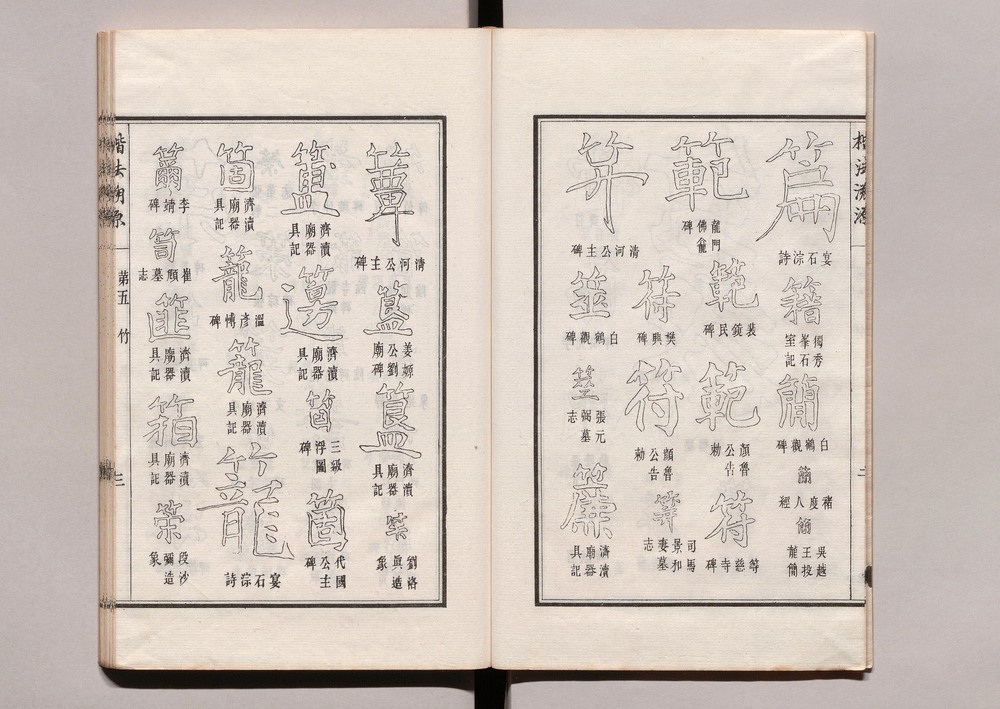 楷法溯源
篇
宴石淙詩
籍
獨秀
峯石
室記
簡
白鶴觀碑
簡
褚度人經
簡
吳越
王投
龍簡
範
龍門
佛龕
碑
範
裴鏡民碑
範
顏魯
公告
勅
符
等慈寺碑
笄
清河公主碑
符
樊興碑
符
顏魯
公告
勅
等
司馬
景和
妻墓
志
筮
白鶴觀碑
筮
張元
弼墓
志
簾
濟瀆
廟器
具記
簟
清河公主碑
簋
姜嫄
公劉
廟碑
簋
濟瀆
廟器
具記
劉洛
眞造
象
濟瀆
廟器
具記
濟瀆
廟器
具記
箇
三級
浮圖
碑
箇
代國
公主
碑
箇
濟瀆
廟器
具記
籠
溫彥博碑
籠
濟瀆
廟器
具記
籠
宴石淙詩
李靖碑
笥
崔頠墓志
篚
濟瀆
廟器
具記
箱
濟瀆
廟器
具記
策
段沙
彌造
象
楷法溯源
第五 竹
三